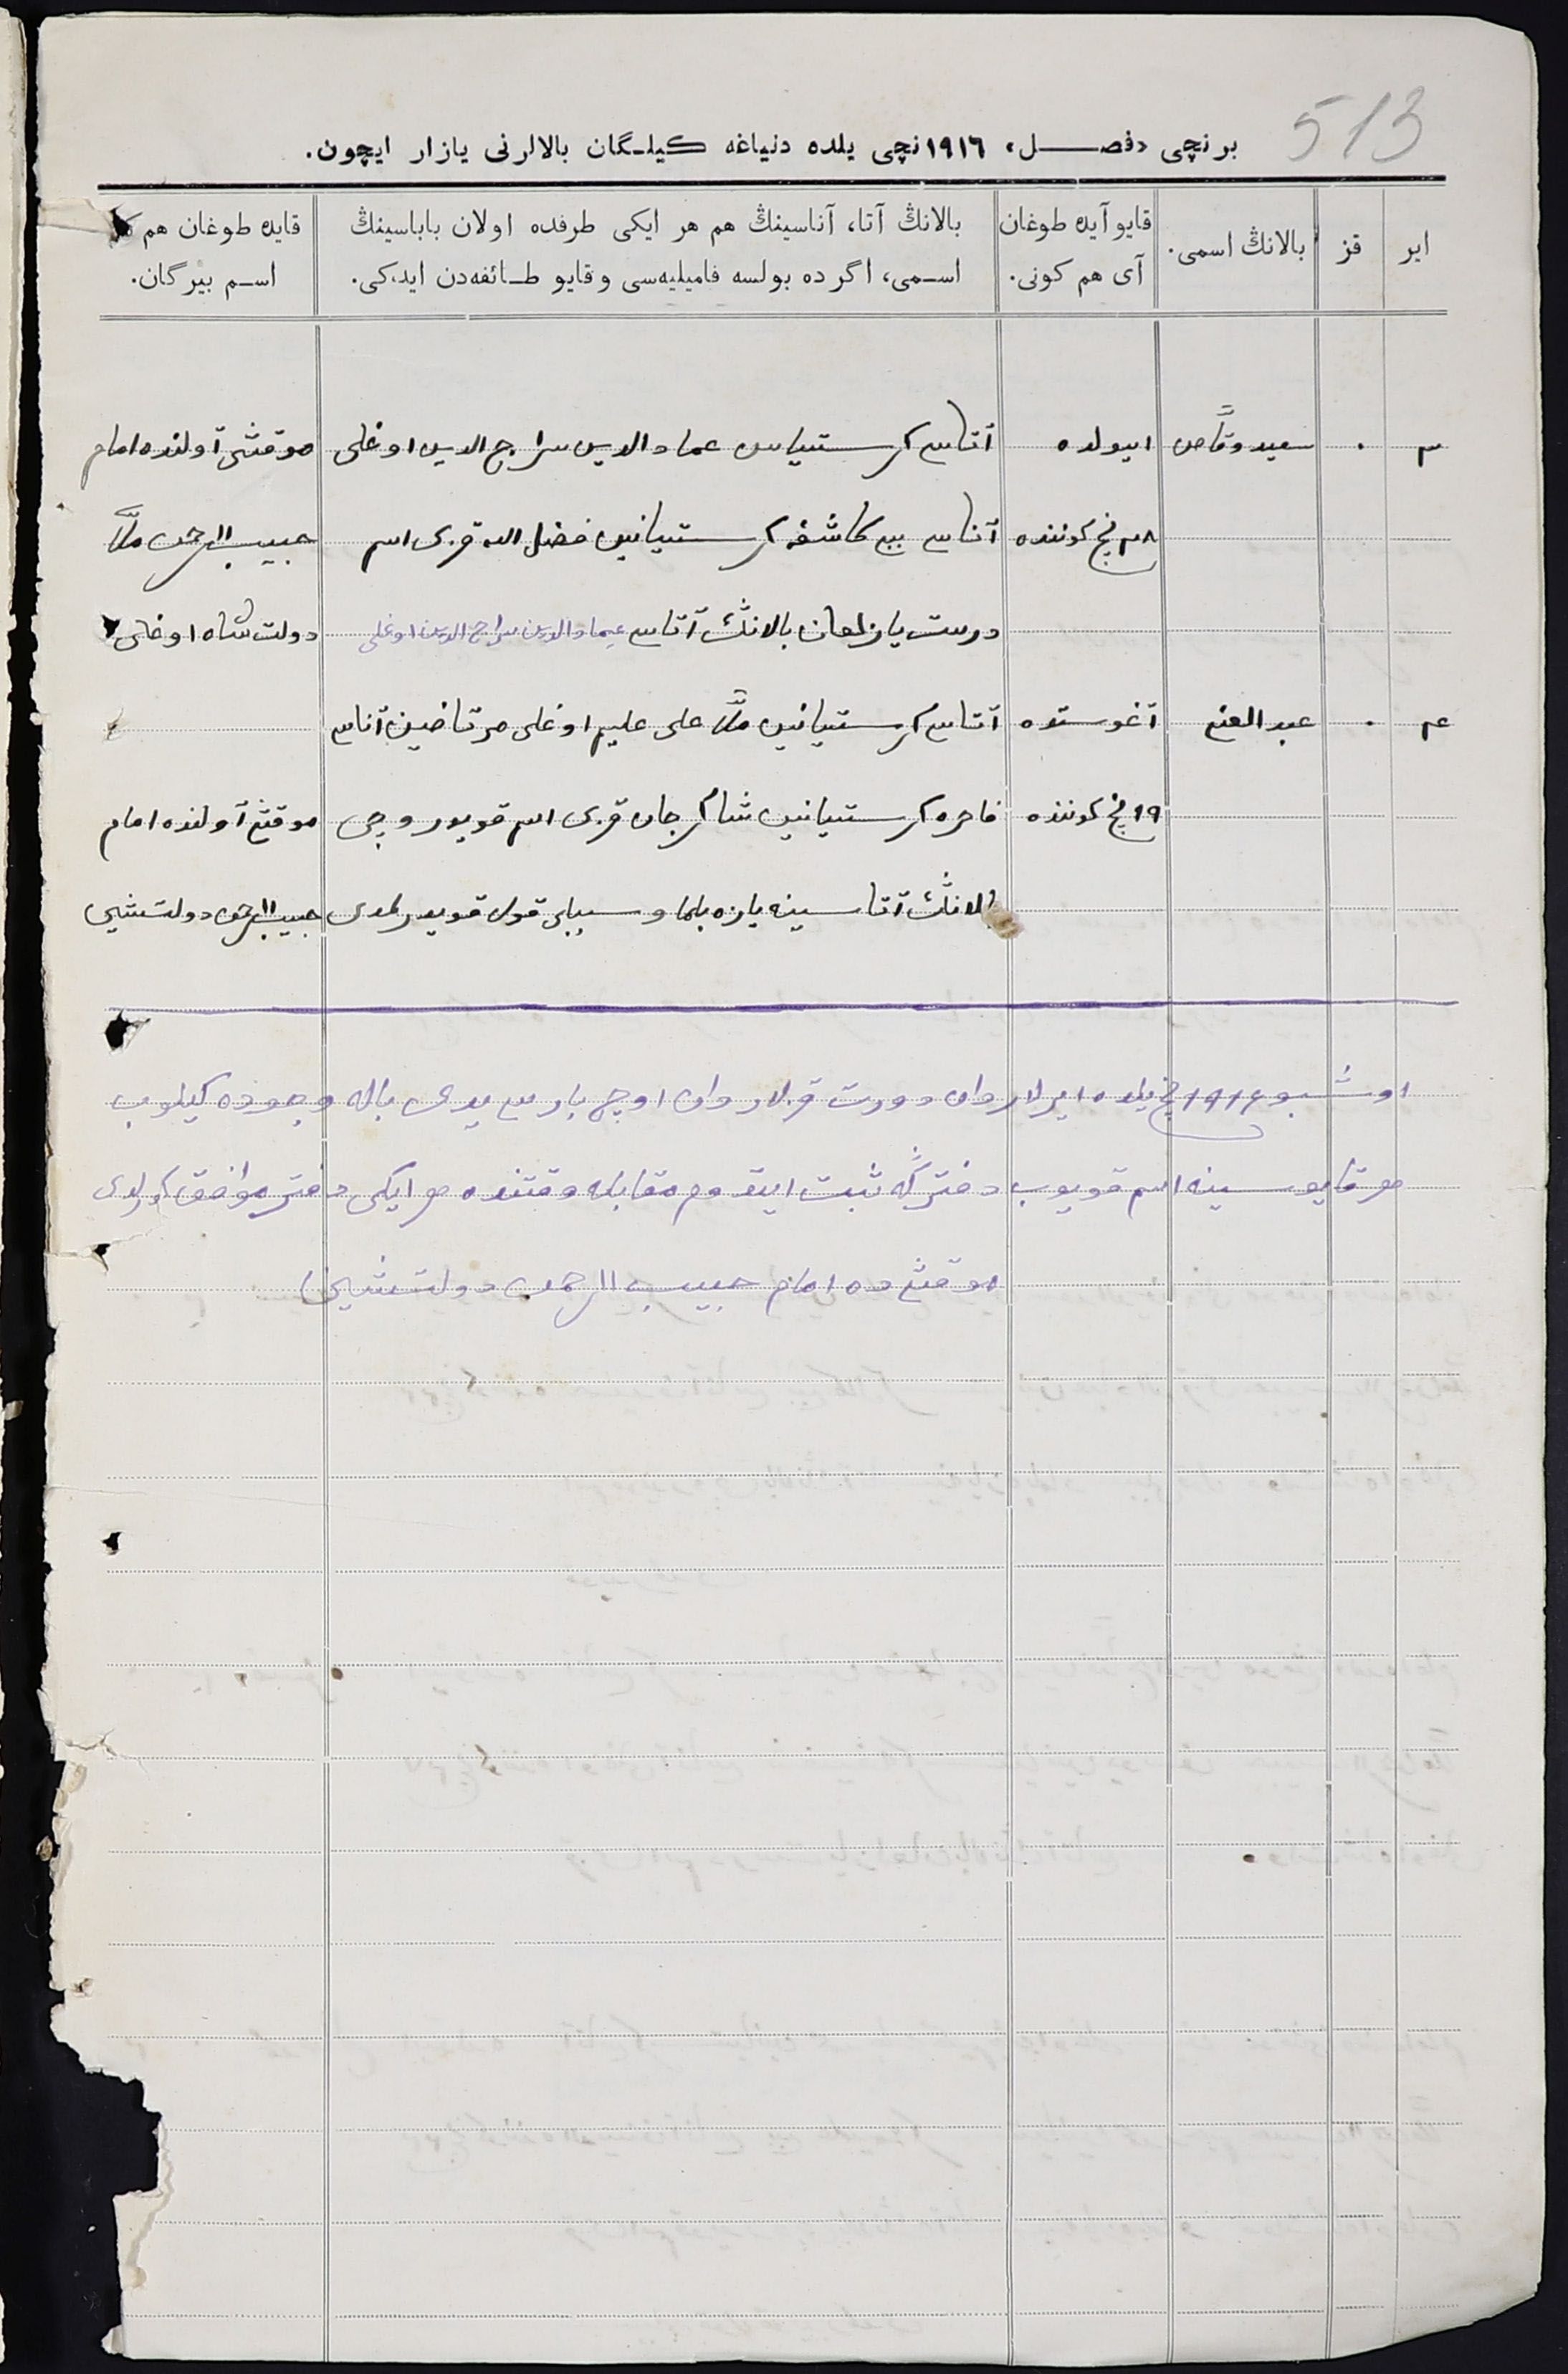 513
برنچی «فصل» ١٩١٦نچی یلده دنیاغه کیلگان بالالرنی یازار ایچون.
ایر قز بالانڭ اسمی. قایو آیده طوغان بالانڭ آتا، آناسینڭ هم هر ایکی طرفده اولان باباسینڭ قایده طوغان هم
آی هم کونی. اسمی، اگر ده بولسه فامیلیه‌سی و قایو طائفه‌دن ایدکی. اسم بیرگان.
٣ . سعید وقاص ایولده آتاسی کرستیانین عماد الدین سراج الدین اوغلی موقشی آولنده امام
٢٨ نچی کوننده آناسی بیبی کاشفه کرستیانین فضل الله قزی اسم حبیب الرحمن ملا
درست یازلغان بالانڭ آتاسی عماد الدین سراج الدین اوغلی دولتشاه اوغلی
٤ . عبد الغنی آغوستده آتاسی کرستیانین ملا علی علیم اوغلی مرتاضین آناسی
١٩ نچی کوننده کرستیانین شاکرجان قزی اسم قویدروچی موقشی آولنده امام
بالانڭ آتاسینه یازه بلماو سببلی قول قویدرلمدی حبیب الرحمن دولتشین
اوشبو ١٩١٦ نچی یلده ایرلاردان دورت قزلاردان اوچ باریسی یدی باله وجوده کیلوب
هر قایوسینه اسم قویوب دفترگه ثبت ایتدوم مقابله وقتنده هر ایکی دفتر موافق کورلدی
موقشیده امام حبیب الرحمن دولتشین